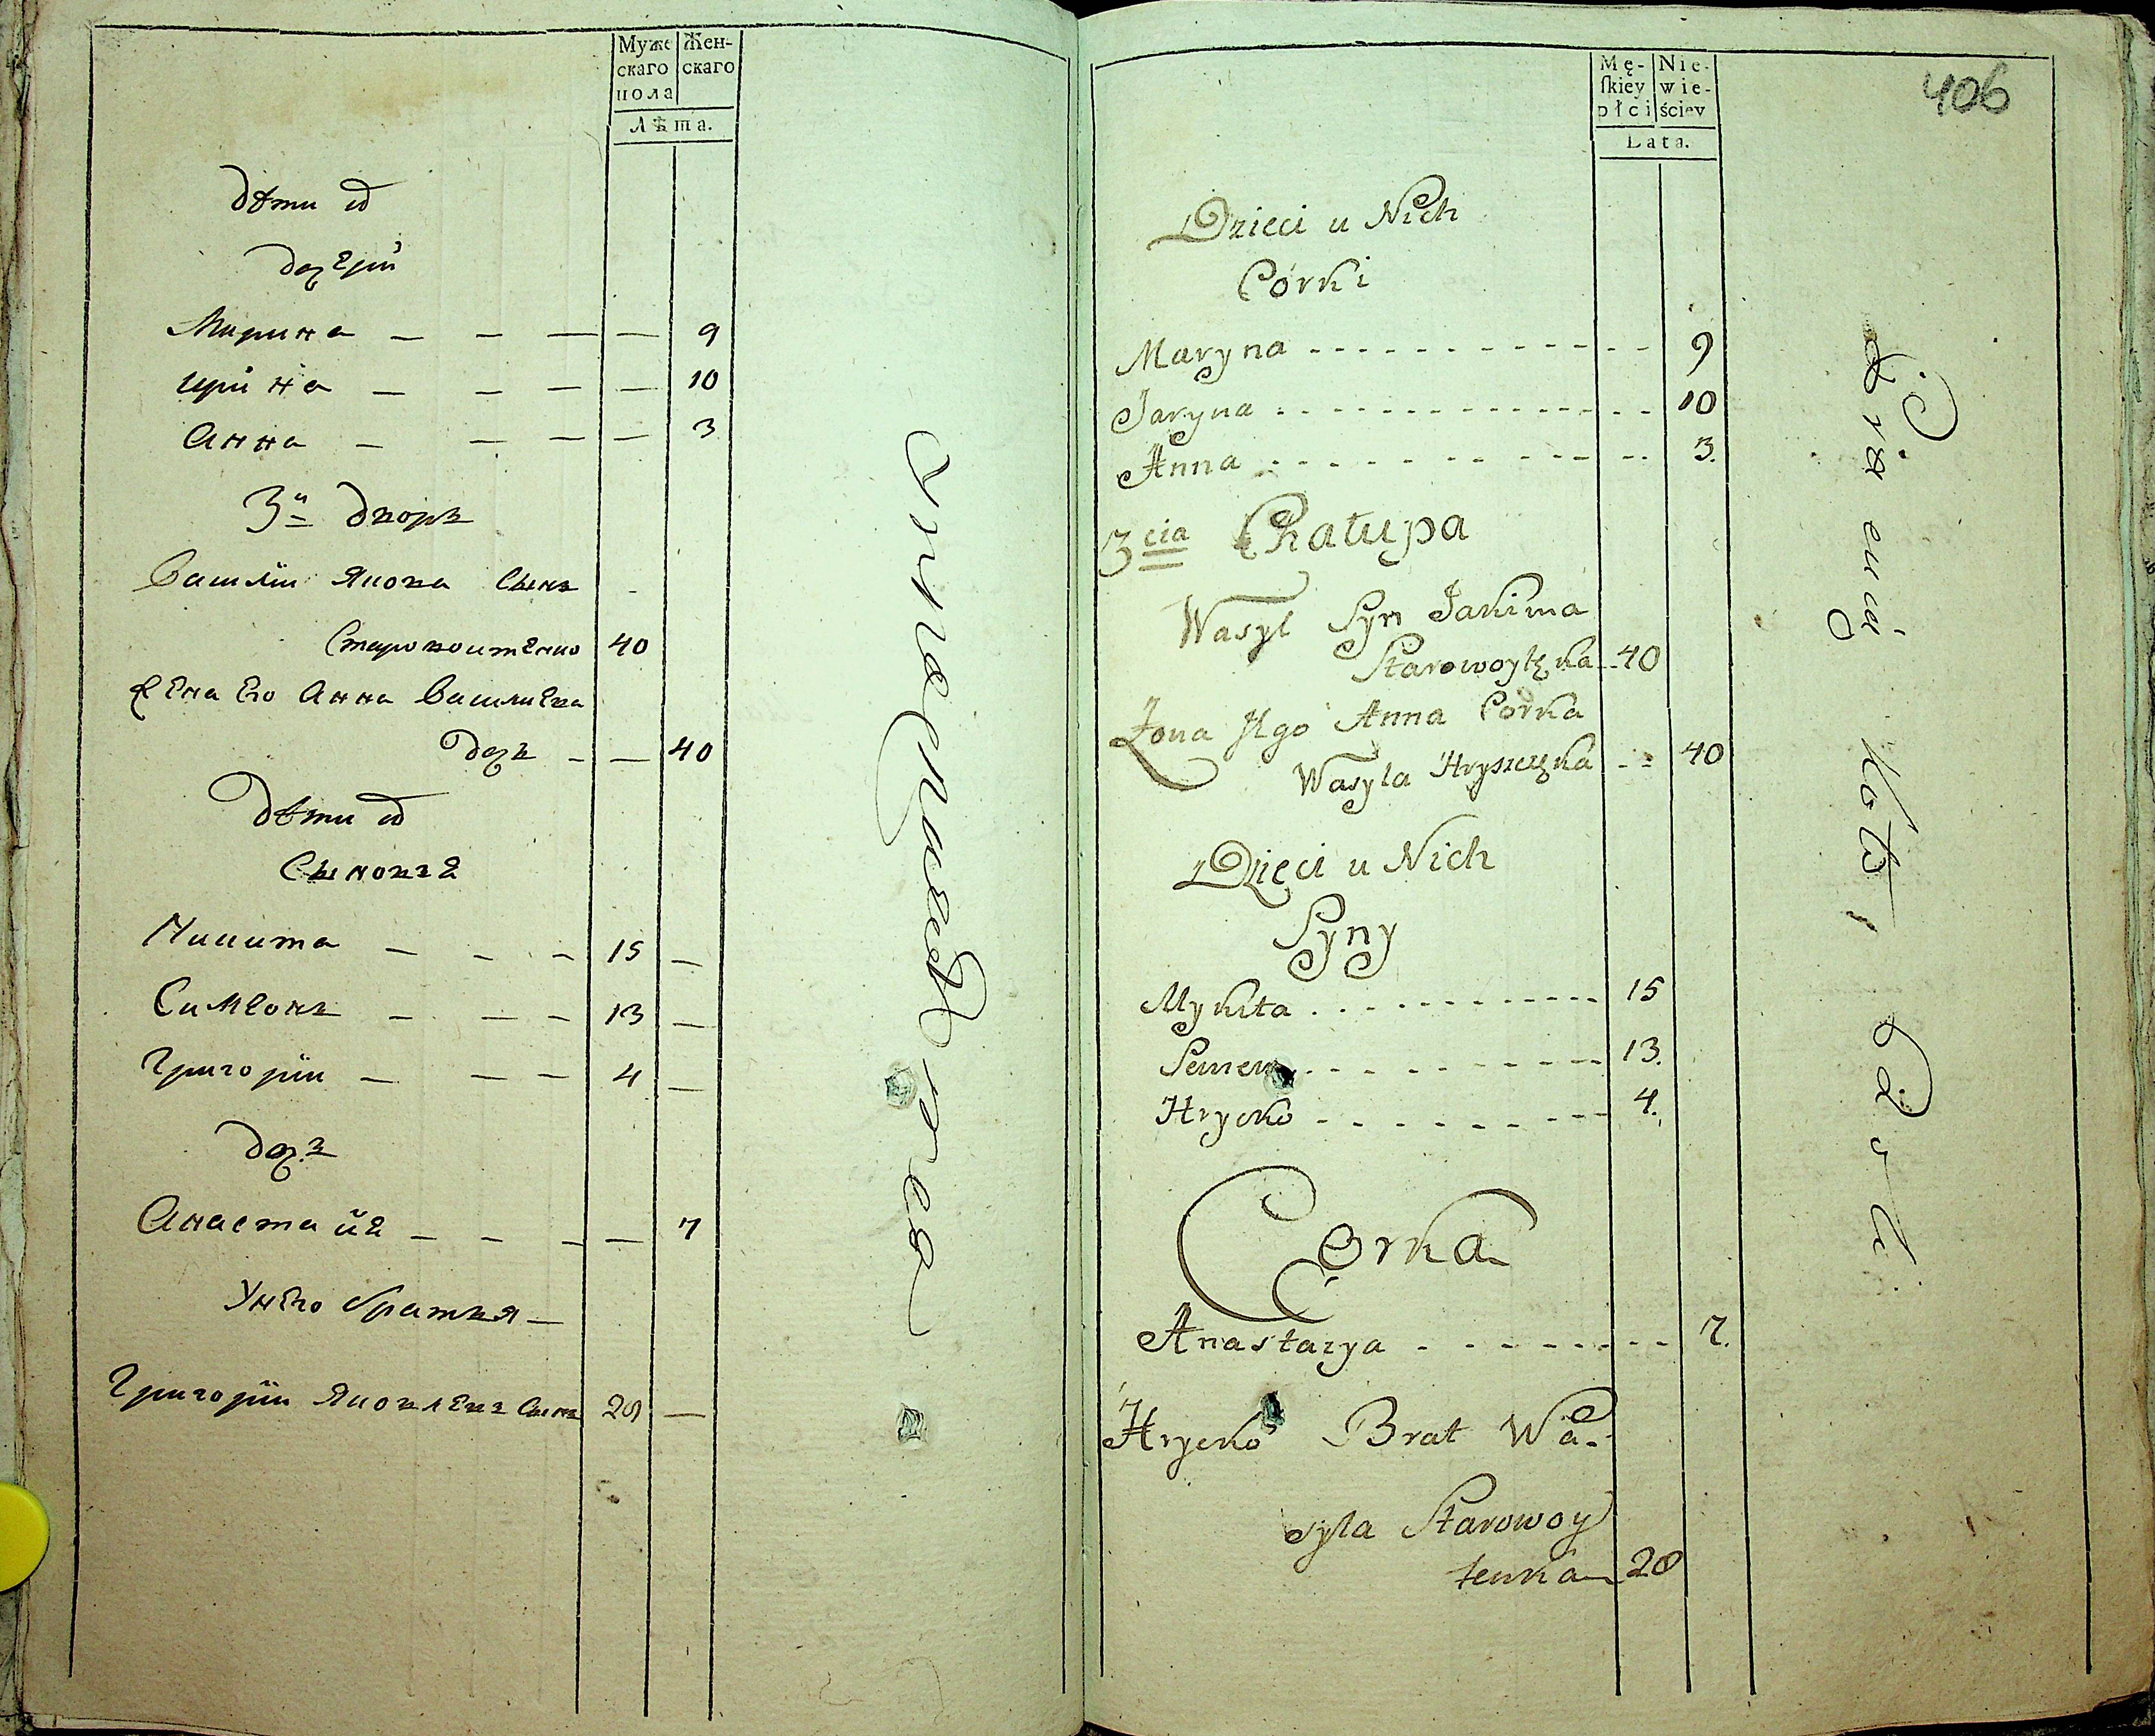 Муже Жен-
скаго скаго
пола
Лѣта.
дѣти их
дочерїи
Марина — — — — 9
ирина — — — — 10
Анна — — — — 3
3й дворъ
Василїи Якова Сынъ
Старовоитенко 40
Жена Его Анна Василиева
дочь — — 40
дѣти их
Сыновья
Никита — — — 15 —
Симеонъ — — — 13 —
Григорїи — — — 4 —
дочь
Анастасїя — — — — 7
У него братья —
Григорїи Яковлевъ Сынъ 28 —
406
Mę- Nie-
ſkiey wie-
płci ściey
Lata.
Dzieci u Nich
Córki
Maryna 9
Jaryna 10
Anna 3.
3cia Chałupa
Wasyl Syn Jakima
Starowoytęka 40
Żona Jego Anna Córka
Wasyla Hryszczęka 40
Dzieci u Nich
Syny
Mykita 15
Semen 13.
Hrycko 4.
Córka
Anastazya 7.
Hrycko Brat Wa-
syla Starowoy
tenka 28